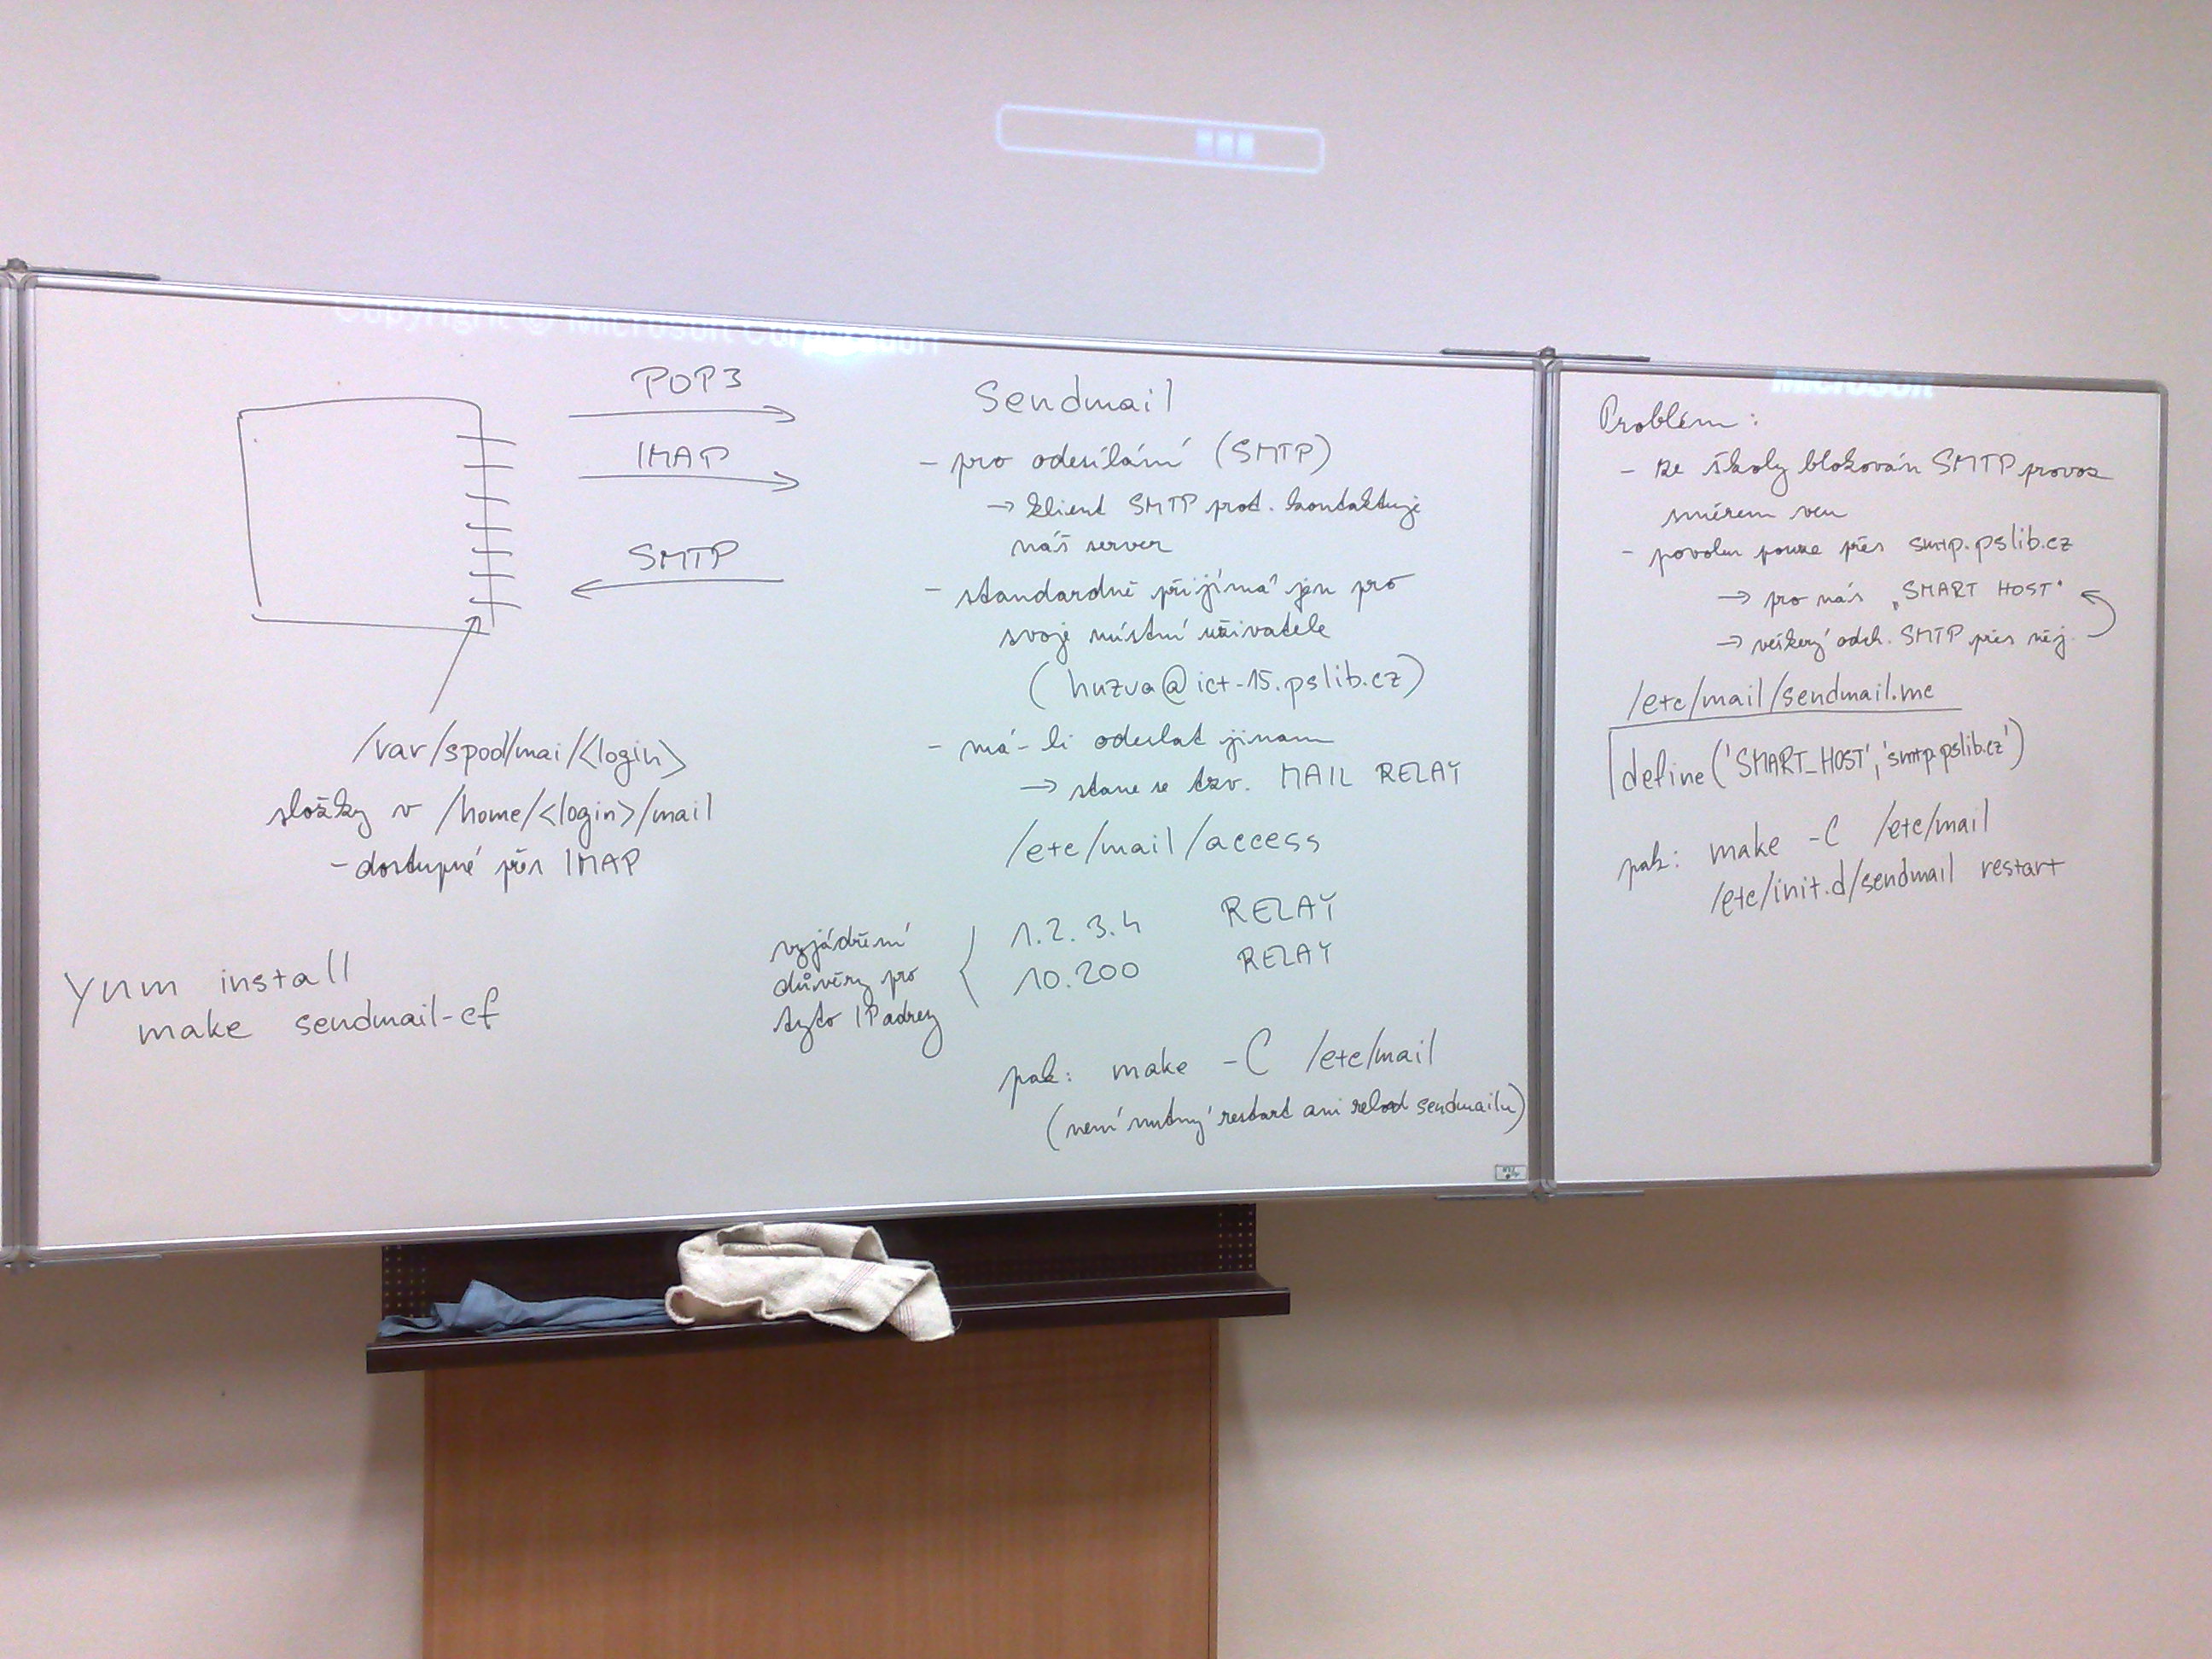 Copyright © Microsoft Corporation
Microsoft
POP3
IMAP
SMTP
/var/spool/mai/<login>
složky v /home/<login>/mail
- dostupné přes IMAP
Yum install
make sendmail-cf
Sendmail
- pro odesílání (SMTP)
→ klient SMTP prot. kontaktuje
náš server
- standardně přijímá jen pro
svoje místní uživatele
(huzva@ict-15.pslib.cz)
- má-li odeslat jinam
→ stane se tzv. MAIL RELAY
/etc/mail/access
vyjádření
důvěry pro
tyto IP adresy
1.2.3.4 RELAY
10.200 RELAY
pak: make -C /etc/mail
(není nutný restart ani reload sendmailu)
Problém:
- ze školy blokován SMTP provoz
směrem ven
- povolen pouze přes smtp.pslib.cz
→ pro nás „SMART HOST"
→ veškerý odch. SMTP přes něj.
/etc/mail/sendmail.mc
define('SMART_HOST','smtp.pslib.cz')
pak: make -C /etc/mail
/etc/init.d/sendmail restart